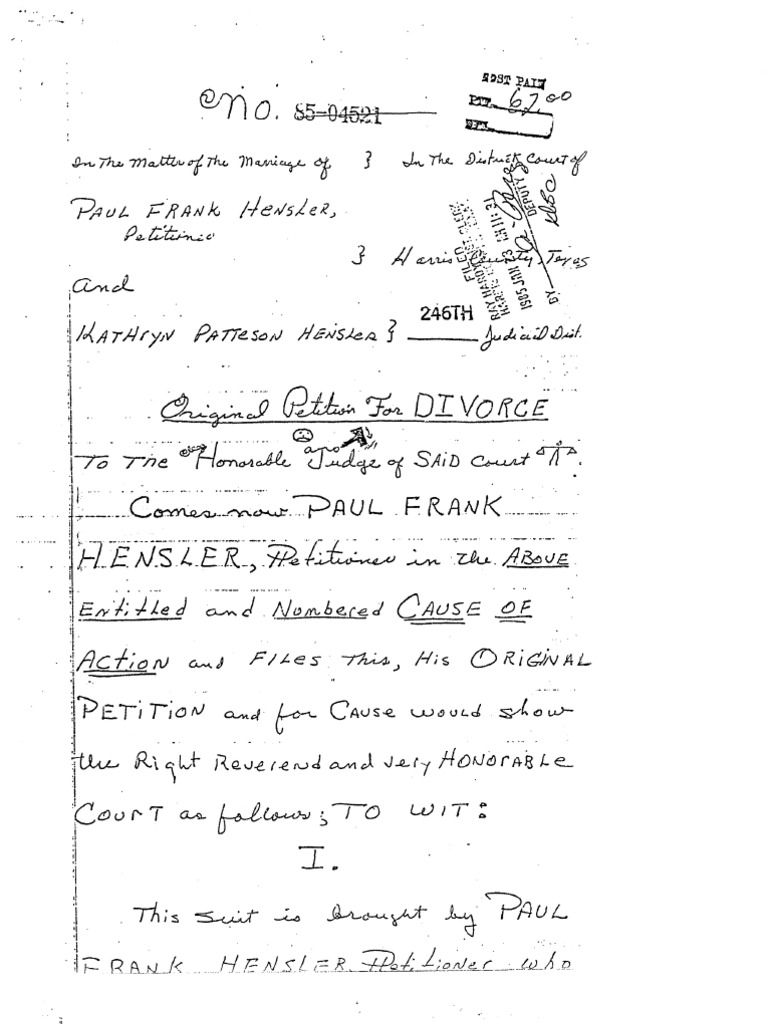 COST PAID
NO. 85-04521
62.00
In The Matter of The Marriage of } In The District Court of
PAUL FRANK HENSLER,
Petitioner
} Harris County, Texas
FILED
RAY HARDY
1985 JAN 23 AM 11:31
BY DEPUTY
and
246TH
KATHRYN PATTESON HENSLER } Judicial Dist.
Original Petition For DIVORCE
To The Honorable Judge of SAID Court
Comes now PAUL FRANK
HENSLER, Petitioner in the ABOVE
Entitled and Numbered CAUSE OF
ACTION and FILES This, His ORIGINAL
PETITION and for CAUSE would show
the Right Reverend and very HONORABLE
COURT as follows; TO WIT:
I.
This suit is brought by PAUL
FRANK HENSLER Petitioner who